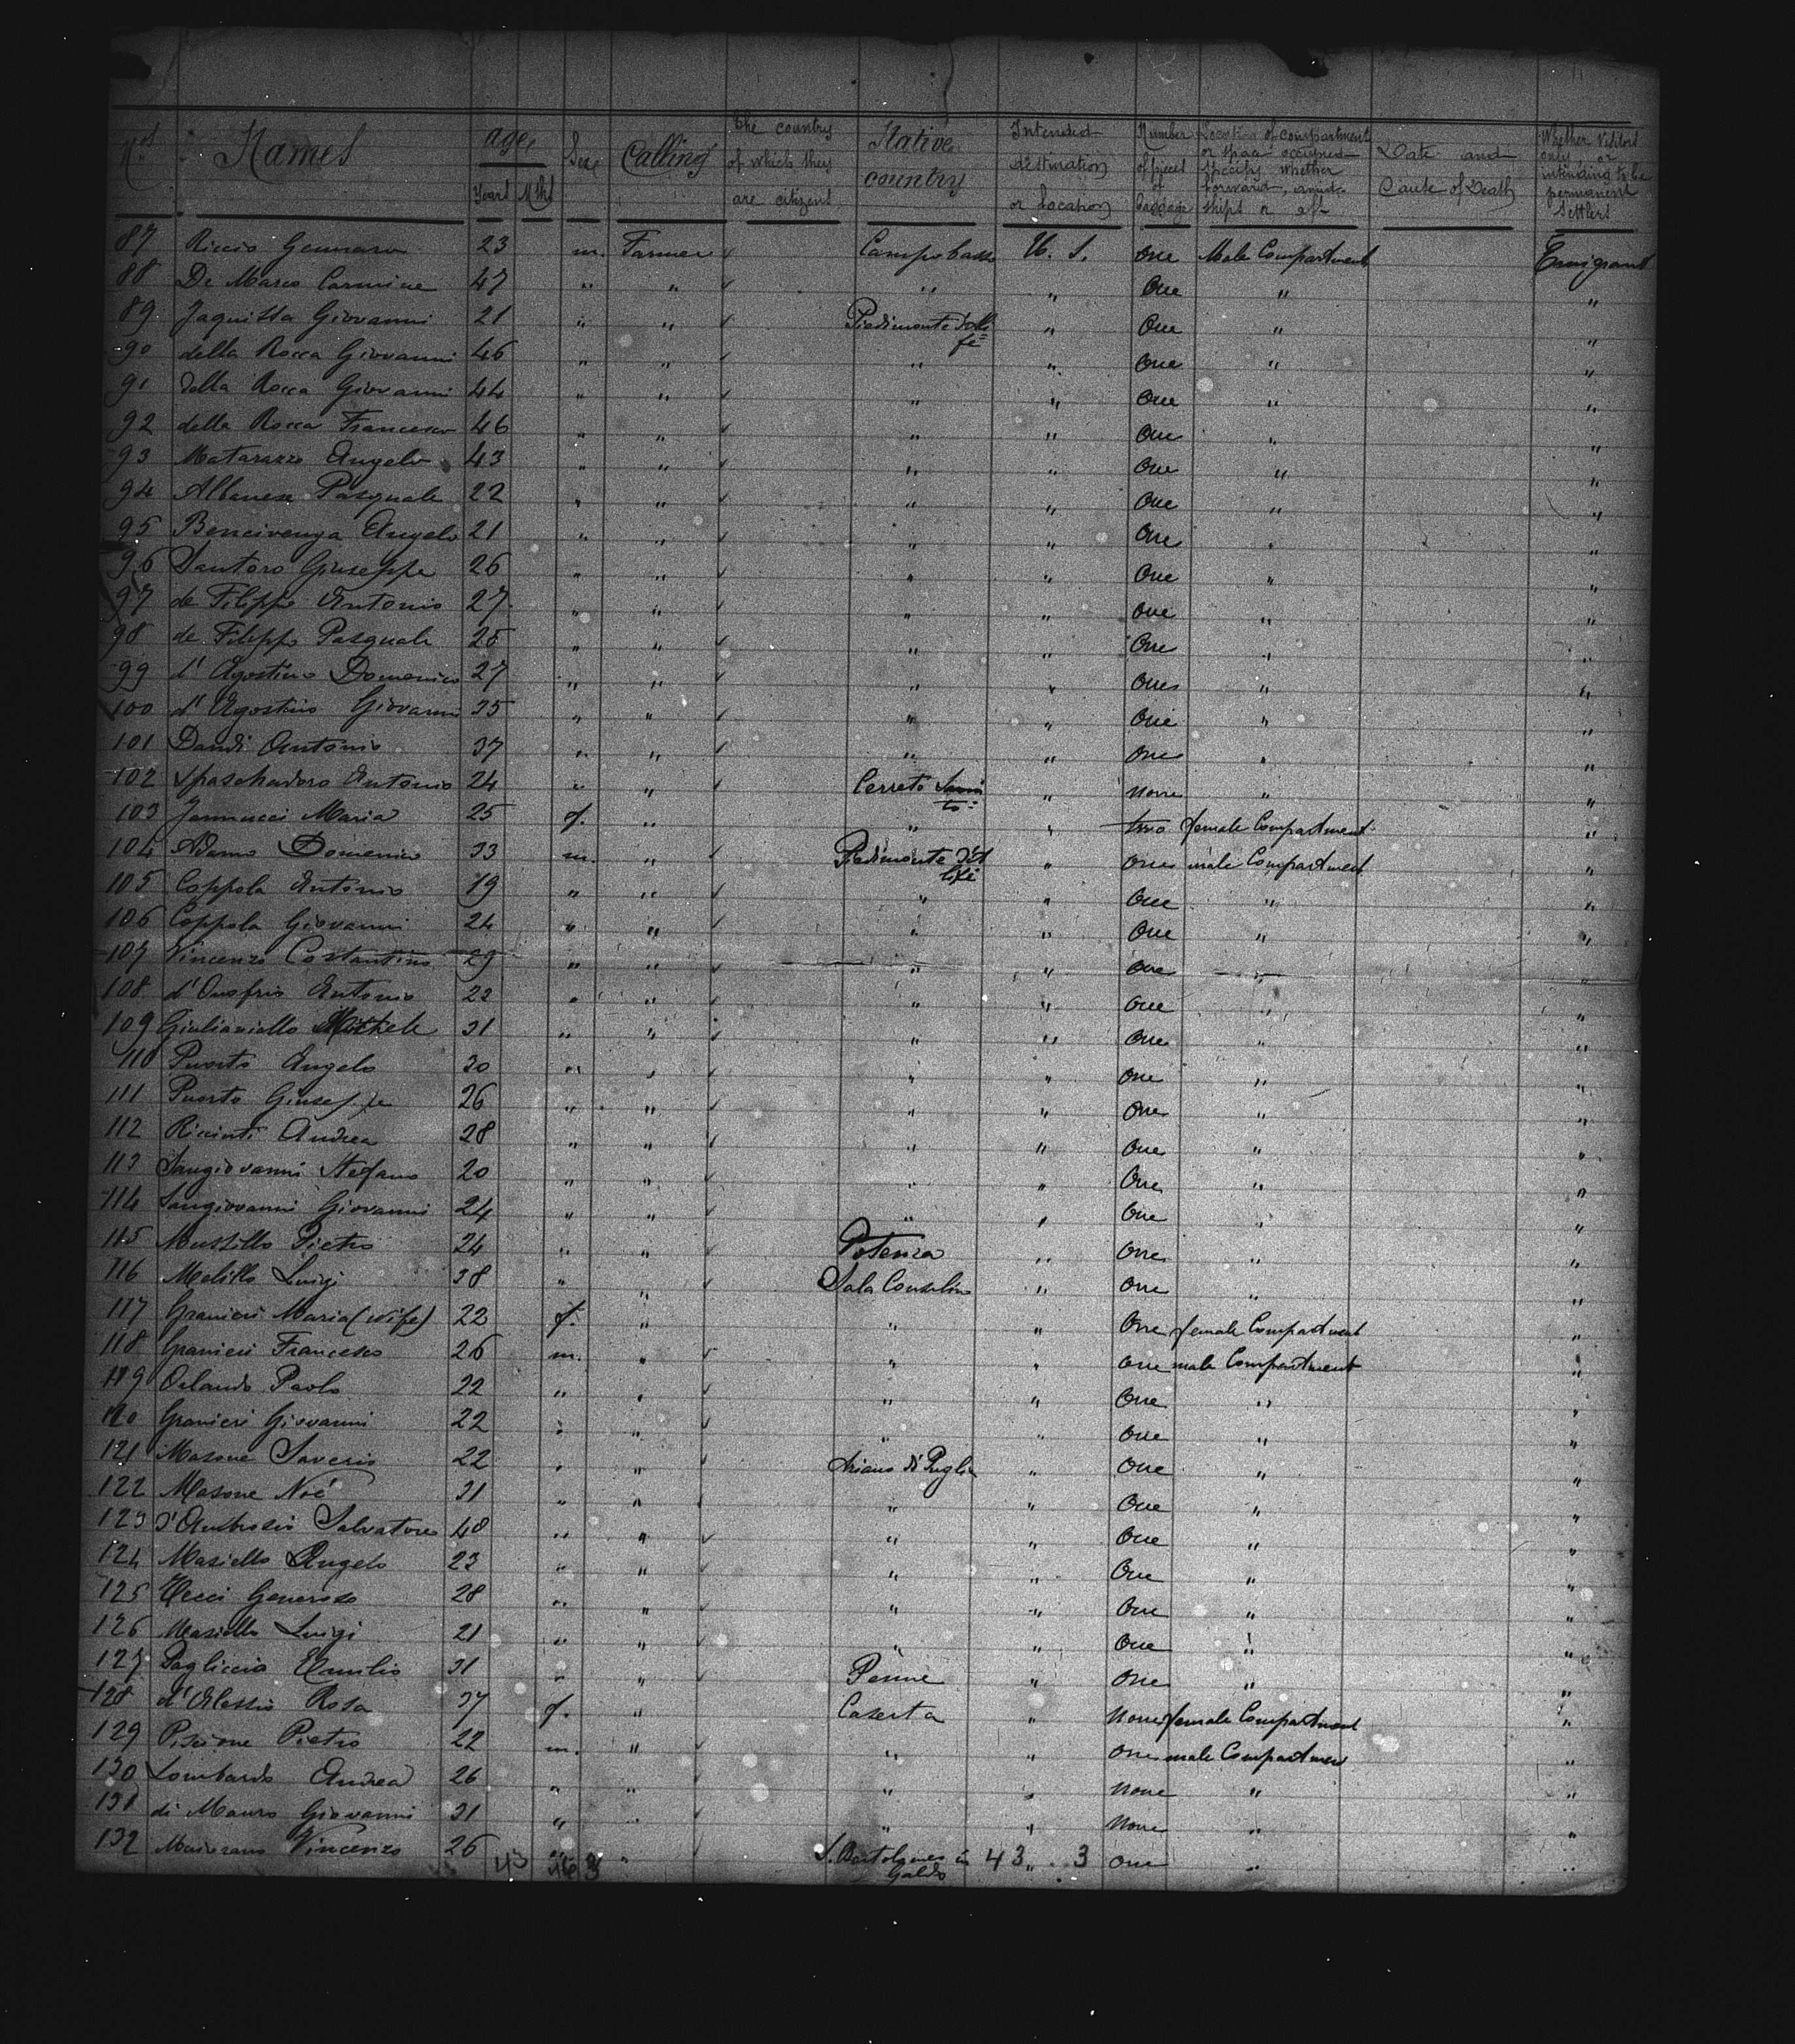 Nos Names age, Sex Calling the country of which they are citizens Native country Intended destination or location Number of pieces of Baggage Location of compartment or space occupied specify whether forward, amidships or aft Date and Cause of Death Whether Visitors only or intending to be permanent Settlers
Years Mths
87 Riccio Gennaro 23 m. Farmer Campobasso U. S. One Male Compartment Emigrant
88 De Marco Carmine 47 " " " " One " "
89 Jaquitta Giovanni 21 " " Piedimonte d'Alife " One " "
90 della Rocca Giovanni 46 " " " " One " "
91 della Rocca Giovanni 44 " " " " One " "
92 della Rocca Francesco 46 " " " " One " "
93 Matarazzo Angelo 43 " " " " One " "
94 Albanese Pasquale 22 " " " " One " "
95 Bencivenga Angelo 21 " " " " One " "
96 Santoro Giuseppe 26 " " " " One " "
97 de Filippo Antonio 27 " " " " One " "
98 de Filippo Pasquale 25 " " " " One " "
99 d'Agostino Domenico 27 " " " " One " "
100 d'Agostino Giovanni 35 " " " " One " "
101 Dandi Antonio 37 " " " " One " "
102 Antonio 24 " " Cerreto Sannito " None " "
103 Jannucci Maria 25 f. " " " two female Compartment "
104 Adamo Domenico 33 m. " Piedimonte d'Alife " One male Compartment "
105 Coppola Antonio 19 " " " " One " "
106 Coppola Giovanni 24 " " " " One " "
107 Vincenzo Costantino 29 " " " " One " "
108 d'Onofrio Antonio 22 " " " " One " "
109 Giulianiello Michele 31 " " " " One " "
110 Puorto Angelo 30 " " " " One " "
111 Puorto Giuseppe 26 " " " " One " "
112 Riccinti Andrea 28 " " " " One " "
113 Sangiovanni Stefano 20 " " " " One " "
114 Sangiovanni Giovanni 24 " " " " One " "
115 Mussillo Pietro 24 " " Potenza " One " "
116 Melillo Luigi 38 " " Sala Consilina " One " "
117 Granieri Maria (wife) 22 f. " " " One female Compartment "
118 Granieri Francesco 26 m. " " " One male Compartment "
119 Orlando Paolo 22 " " " " One " "
120 Granieri Giovanni 22 " " " " One " "
121 Masone Saverio 22 " " Ariano di Puglia " One " "
122 Masone Noé 31 " " " " One " "
123 d'Ambrosio Salvatore 40 " " " " One " "
124 Masiello Angelo 23 " " " " One " "
125 Generoso 28 " " " " One " "
126 Masiello Luigi 21 " " " " One " "
127 Pagliccia Emilio 31 " " Penne " One " "
128 d'Alessio Rosa 37 f. " Caserta " None female Compartment "
129 Piscione Pietro 22 m. " " " One male Compartment "
130 Lombardo Andrea 26 " " " " None " "
131 di Mauro Giovanni 31 " " " " None " "
132 Vincenzo 26 " " S. Bartolomeo in Galdo " One " "
43 43 3